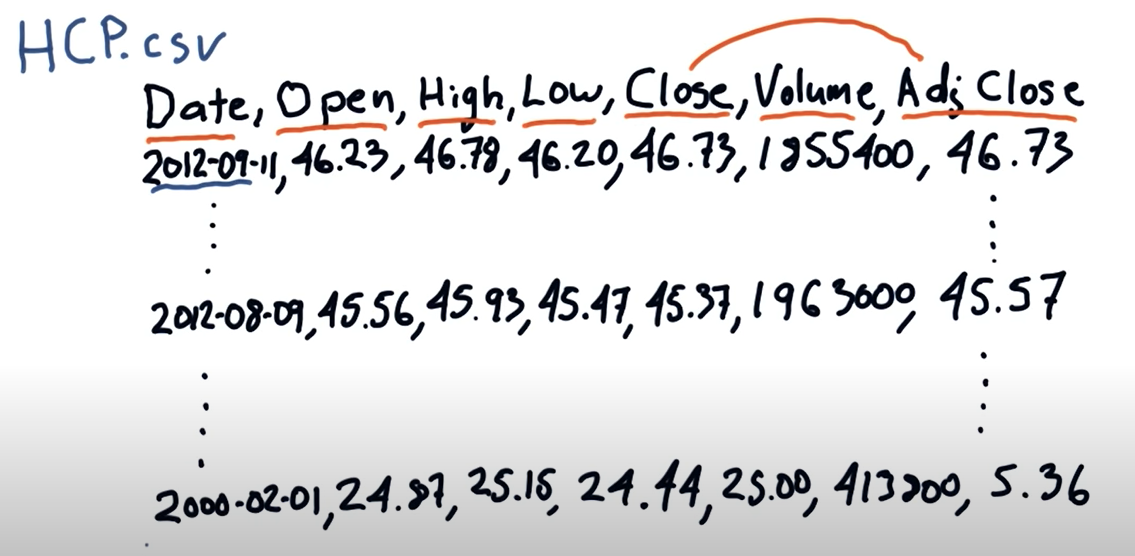 HCP.csv
Date, Open, High, Low, Close, Volume, Adj Close
2012-09-11, 46.23, 46.78, 46.20, 46.73, 1855400, 46.73
2012-08-09, 45.56, 45.93, 45.47, 45.37, 1963600, 45.57
2000-02-01, 24.87, 25.15, 24.44, 25.00, 413800, 5.36